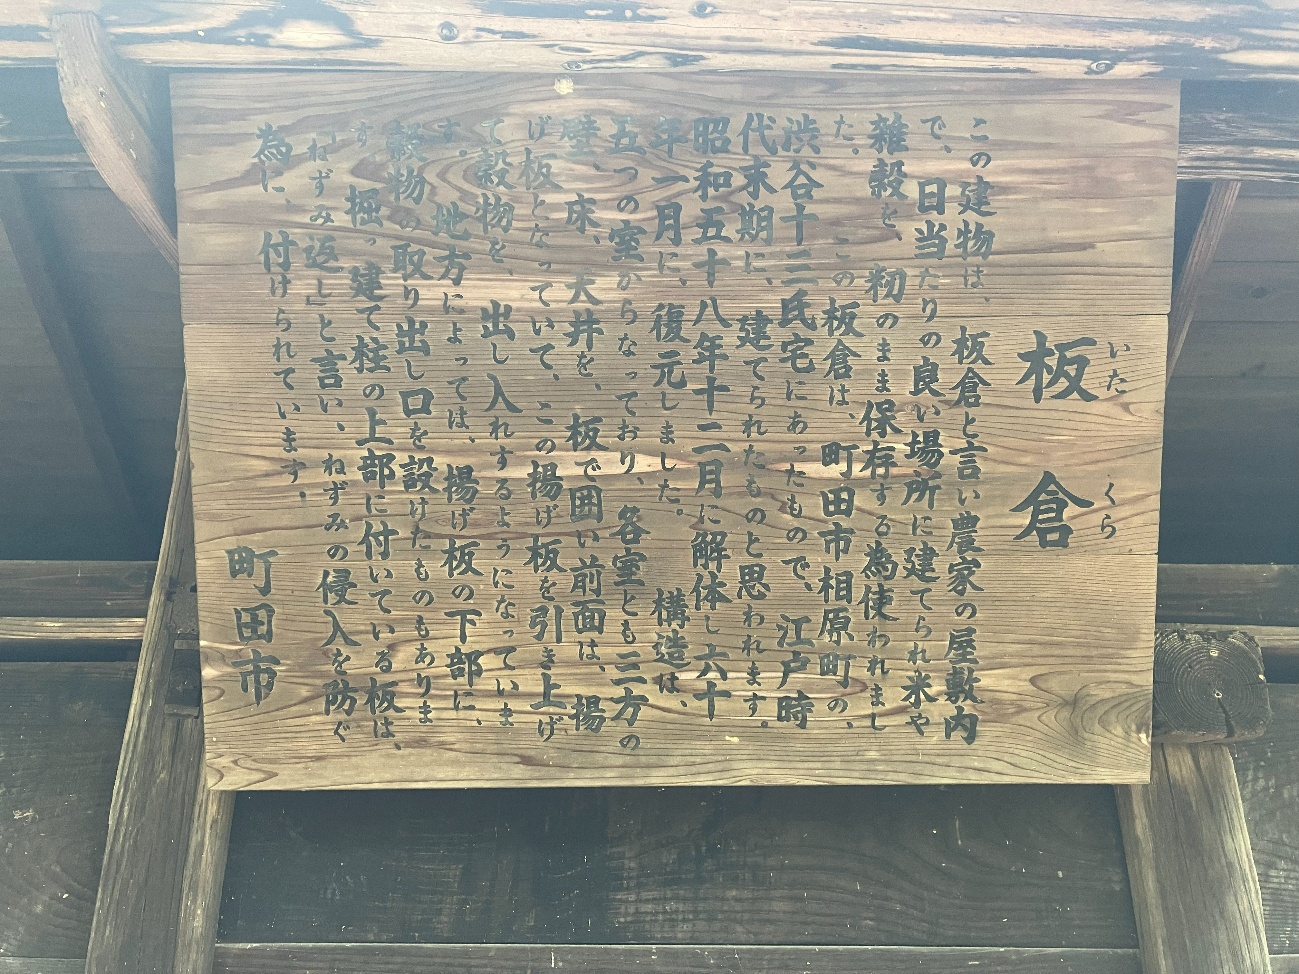 板倉
いたくら
この建物は、板倉と言い農家の屋敷内
で、日当たりの良い場所に建てられ米や
雑穀を、籾のまま保存する為使われまし
た。この板倉は、町田市相原町の、
渋谷十三氏宅にあったもので、江戸時
代末期に、建てられたものと思われます。
昭和五十八年十二月に解体し六十
年一月に、復元しました。構造は、
五つの室からなっており、各室とも三方の
壁、床、天井を、板で囲い前面は、揚
げ板となっていて、この揚げ板を引き上げ
て穀物を、出し入れするようになっていま
す。地方によっては、揚げ板の下部に、
穀物の取り出し口を設けたものもありま
す。掘っ建て柱の上部に付いている板は、
「ねずみ返し」と言い、ねずみの侵入を防ぐ
為に、付けられています。
町田市